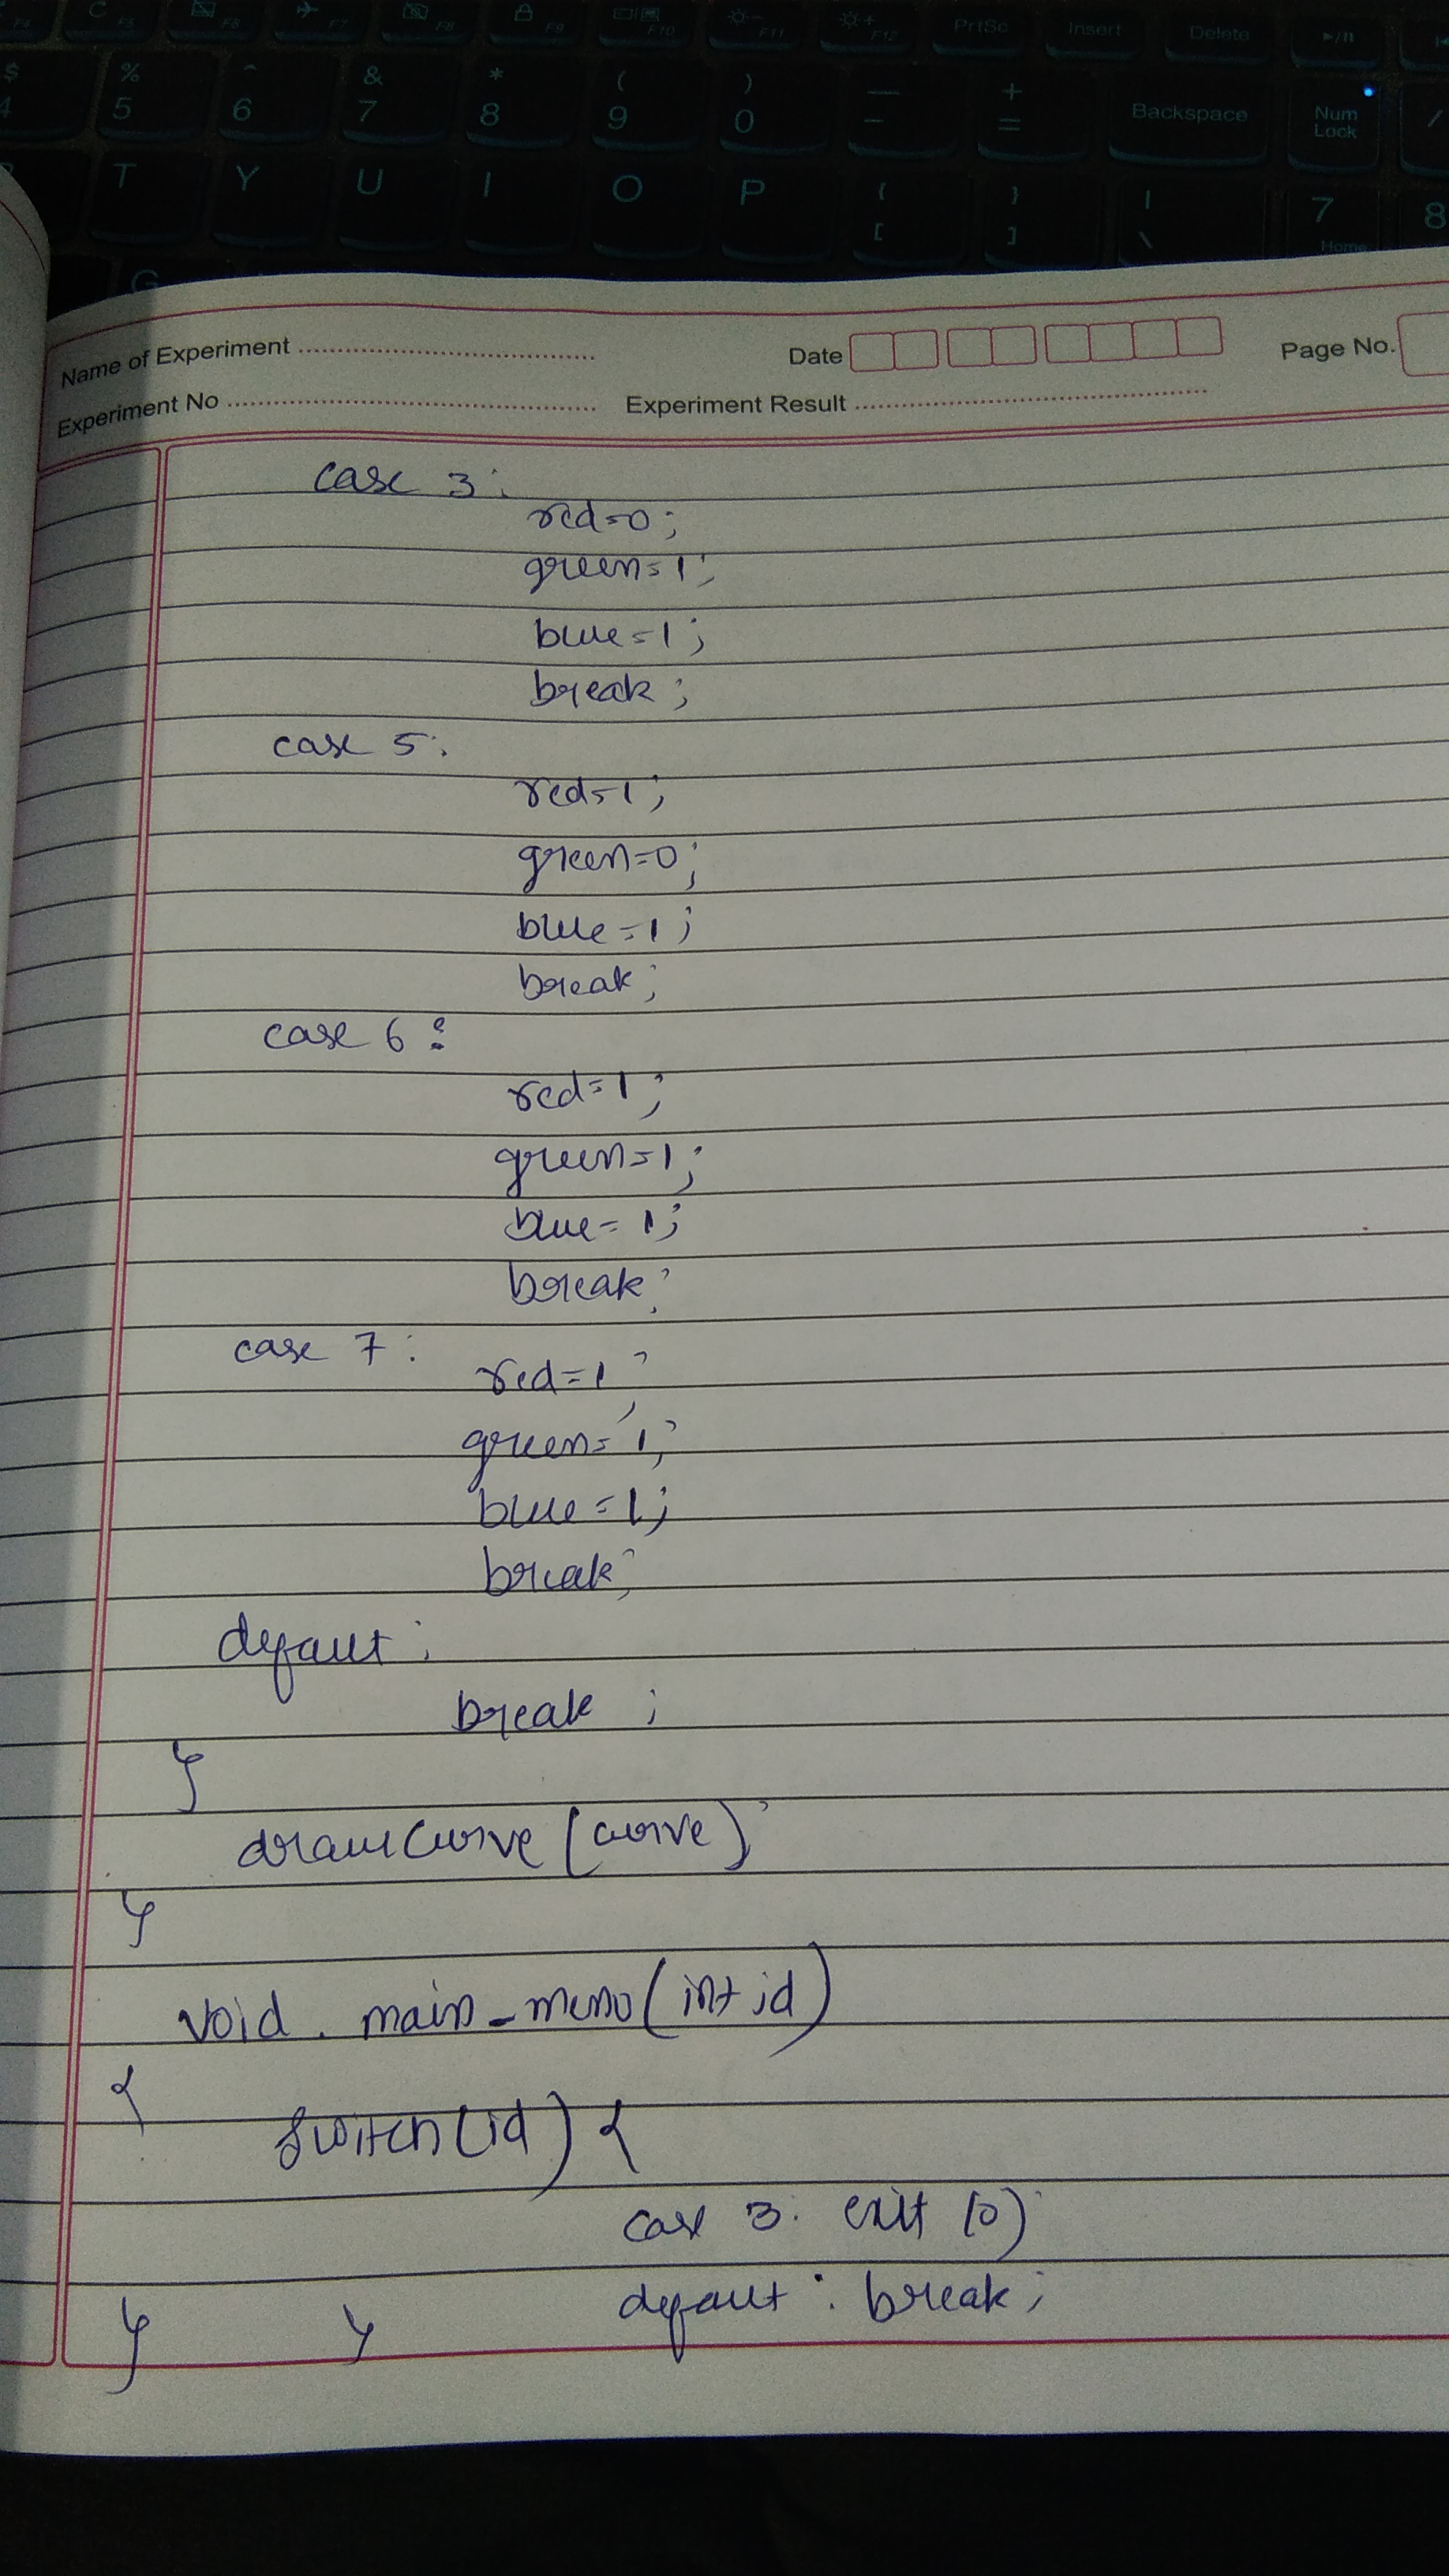 C F5 F6 F7 F8 F9 F10 F11 F12 PrtSc Insert Delete
$ % ^ & * ( ) — + Backspace Num Lock
4 5 6 7 8 9 0 - = /
T Y U I O P { [ } ] | \ 7 Home 8
G
Name of Experiment Date Page No.
Experiment No Experiment Result
case 3:
red=0;
green=1;
blue=1;
break;
case 5:
red=1;
green=0;
blue=1;
break;
case 6:
red=1;
green=1;
blue=1;
break;
case 7:
red=1;
green=1;
blue=1;
break;
defaut:
break;
}
drawCurve(curve);
}
void main_menu(int id)
{
switch(id) {
case 3: exit (0)
defaut: break;
} }